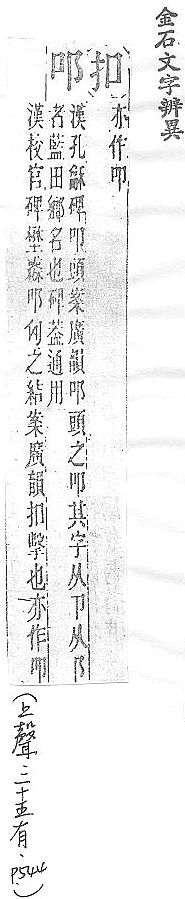 金石文字辨異
扣叩
亦作叩
漢孔龢碑叩頭案廣韻叩頭之叩其字从卩从阝
者藍田鄉名也碑葢通用
漢校官碑叩之結案廣韻扣擊也亦作叩
(上聲.三十五有.P544)